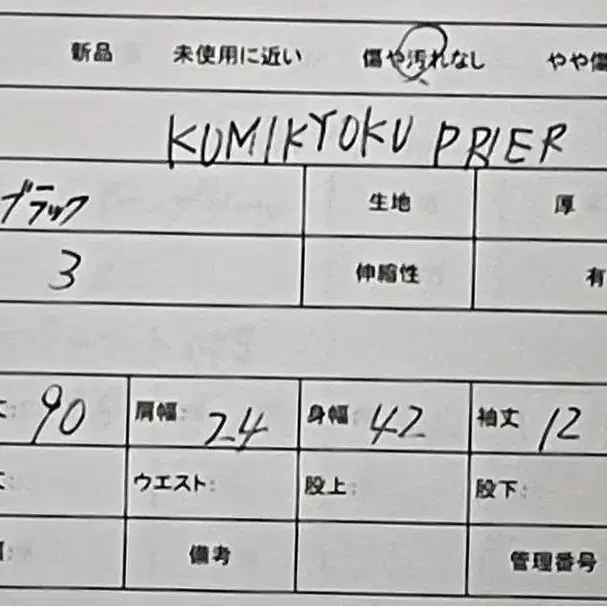 新品 未使用に近い 傷や汚れなし やや傷
KUMIKYOKU PRIER
ブラック 生地 厚
3 伸縮性 有
丈: 90 肩幅: 24 身幅: 42 袖丈: 12
ウエスト: 股上: 股下:
備考 管理番号